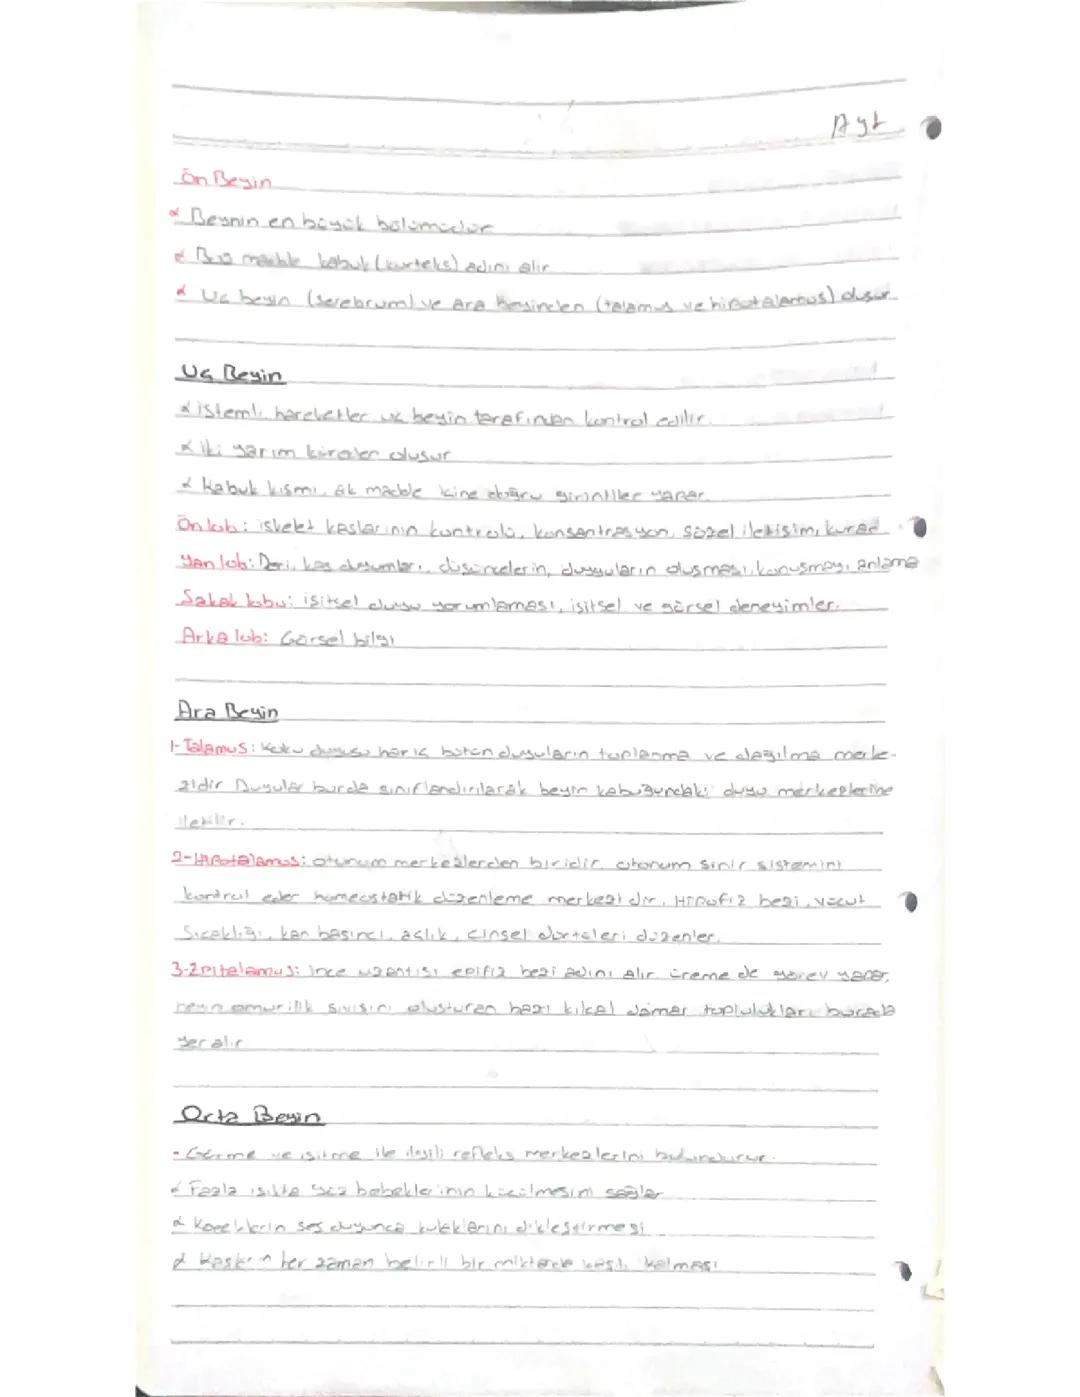 Ayt
Ön Beyin
Beynin en büyük bölümüdür
Boz madde kabuk (korteks) adını alır
Uç beyin (serebrum) ve Ara beyinden (talamus ve hipotalamus) oluşur.
Uç Beyin
istemli hareketler uç beyin tarafından kontrol edilir.
İki yarım küreden oluşur
Kabuk kısmı, ak madde içine doğru girintiler yapar.
Ön lob: iskelet kaslarının kontrolü, konsantrasyon, sözel iletişim,
Yan lob: Deri, kas duyumları, düşüncelerin, duyguların oluşması, konuşmayı anlama
Şakak lobu: işitsel duyu yorumlaması, işitsel ve görsel deneyimler.
Arka lob: Görsel bilgi
Ara Beyin
1-Talamus: Koku duyusu hariç bütün duyuların toplanma ve dağılma merke-
zidir Duyular burda sınıflandırılarak beyin kabuğundaki duyu merkezlerine
iletilir.
2-Hipotalamus: otonom merkezlerden biridir. otonom sinir sistemini
kontrol eder homeostatik düzenleme merkezidir. Hipofiz bezi, vücut
Sıcaklığı, kan basıncı, açlık, cinsel dürtüleri düzenler.
3-Epitalamus: ince uzantısı epifiz bezi adını alır üreme de görev yapar,
beyin omurilik sıvısını oluşturan bazı kılcal damar toplulukları burada
yer alır
Orta Beyin
- Görme ve işitme ile ilgili refleks merkezlerini bulundurur.
Fazla ışıkta göz bebeklerinin küçülmesini sağlar
Köpeklerin ses duyunca kulaklarını dikleştirmesi
her zaman belirli bir miktarda kasılı kalması